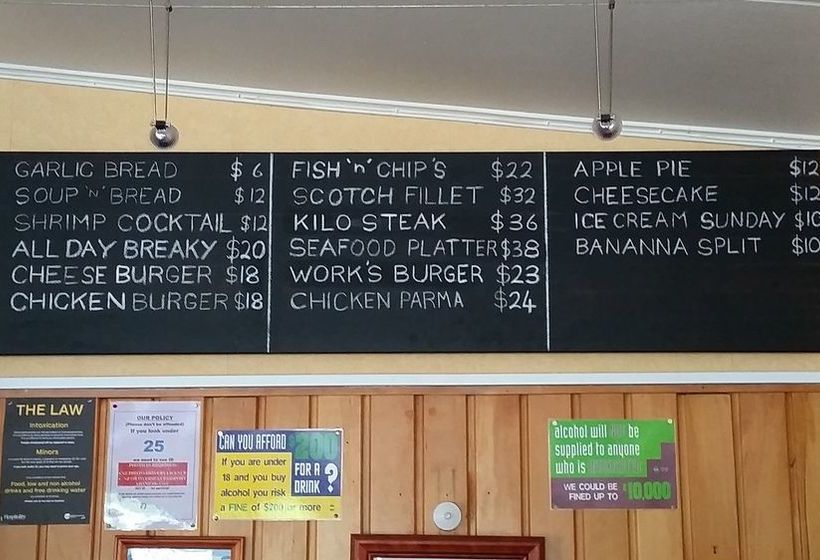 GARLIC BREAD $6
SOUP 'N' BREAD $12
SHRIMP COCKTAIL $12
ALL DAY BREAKY $20
CHEESE BURGER $18
CHICKEN BURGER $18
FISH 'n' CHIP'S $22
SCOTCH FILLET $32
KILO STEAK $36
SEAFOOD PLATTER $38
WORK'S BURGER $23
CHICKEN PARMA $24
APPLE PIE $12
CHEESECAKE $12
ICE CREAM SUNDAY $10
BANANNA SPLIT $10
THE LAW
Intoxication
Minors
Food, low and non alcohol
drinks and free drinking water
OUR POLICY
(Please don't be offended)
If you look under
25
we need to see ID
CAN YOU AFFORD $200
FOR A
DRINK?
If you are under
18 and you buy
alcohol you risk
a FINE of $200 or more
alcohol will not be
supplied to anyone
who is
WE COULD BE
FINED UP TO $10,000